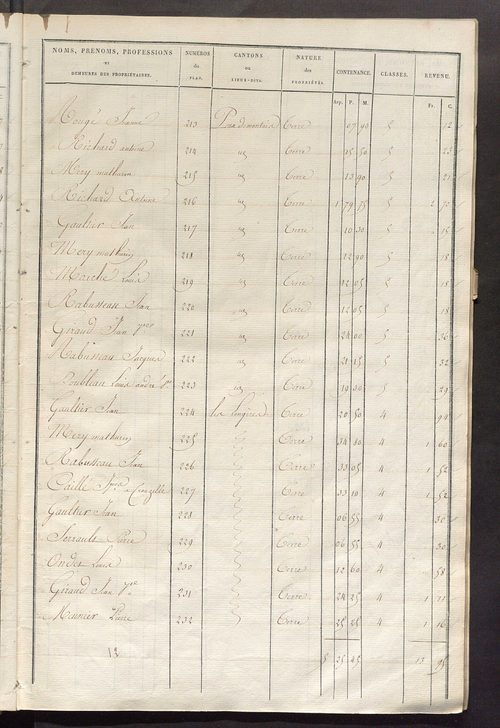 NOMS, PRÉNOMS, PROFESSIONS ET DEMEURES DES PROPRIÉTAIRES. NUMÉROS du PLAN. CANTONS ou LIEUX-DITS. NATURE des PROPRIÉTÉS. CONTENANCE. CLASSES. REVENU.
Arp. P. M. Fr. C.
Rougé 213 Terre 07 90 5 12
Richard antoine 214 Terre 15 50 5 23
Mery mathurin 215 Terre 13 90 5 21
Richard Antoine 216 Terre 1 79 75 5 2 70
Gaultier Jean 217 Terre 10 30 5 15
Mery mathurin 218 Terre 12 90 5 18
Louis 219 Terre 12 05 5 18
Rabusseau Jean 220 Terre 12 05 5 18
Giraud Jean 221 Terre 24 00 5 36
Rabusseau Jacques 222 Terre 21 15 5 32
Louis andre 223 Terre 19 30 5 29
Gaultier Jean 224 les Terre 20 50 4 94
Mery mathurin 225 Terre 34 80 4 1 60
Rabusseau Jean 226 Terre 33 05 4 1 52
Caillé 227 Terre 33 10 4 1 52
Gaultier Jean 228 Terre 06 55 4 30
Pierre 229 Terre 06 55 4 30
Louis 230 Terre 12 60 4 58
Giraud Jean 231 Terre 24 25 4 1 11
Meunier Pierre 232 Terre 25 25 4 1 16
5 25 45 13 95